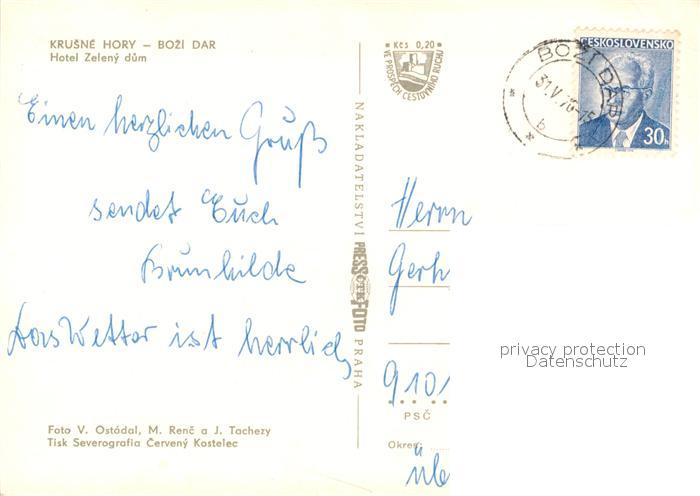 KRUŠNÉ HORY – BOŽÍ DAR
Hotel Zelený dům
Einen herzlichen Gruß
sendet Euch
Brunhilde
Das Wetter ist herrlich
Foto V. Ostódal, M. Renč a J. Tachezy
Tisk Severografia Červený Kostelec
NAKLADATELSTVÍ PRESSFOTO PRAHA
Kčs 0,20
VE PROSPĚCH CESTOVNÍHO RUCHU
BOŽÍ DAR
31.V.76-15
b
ČESKOSLOVENSKO
30h
Herrn
Gerh
9101
PSČ
Okres:
privacy protection
Datenschutz